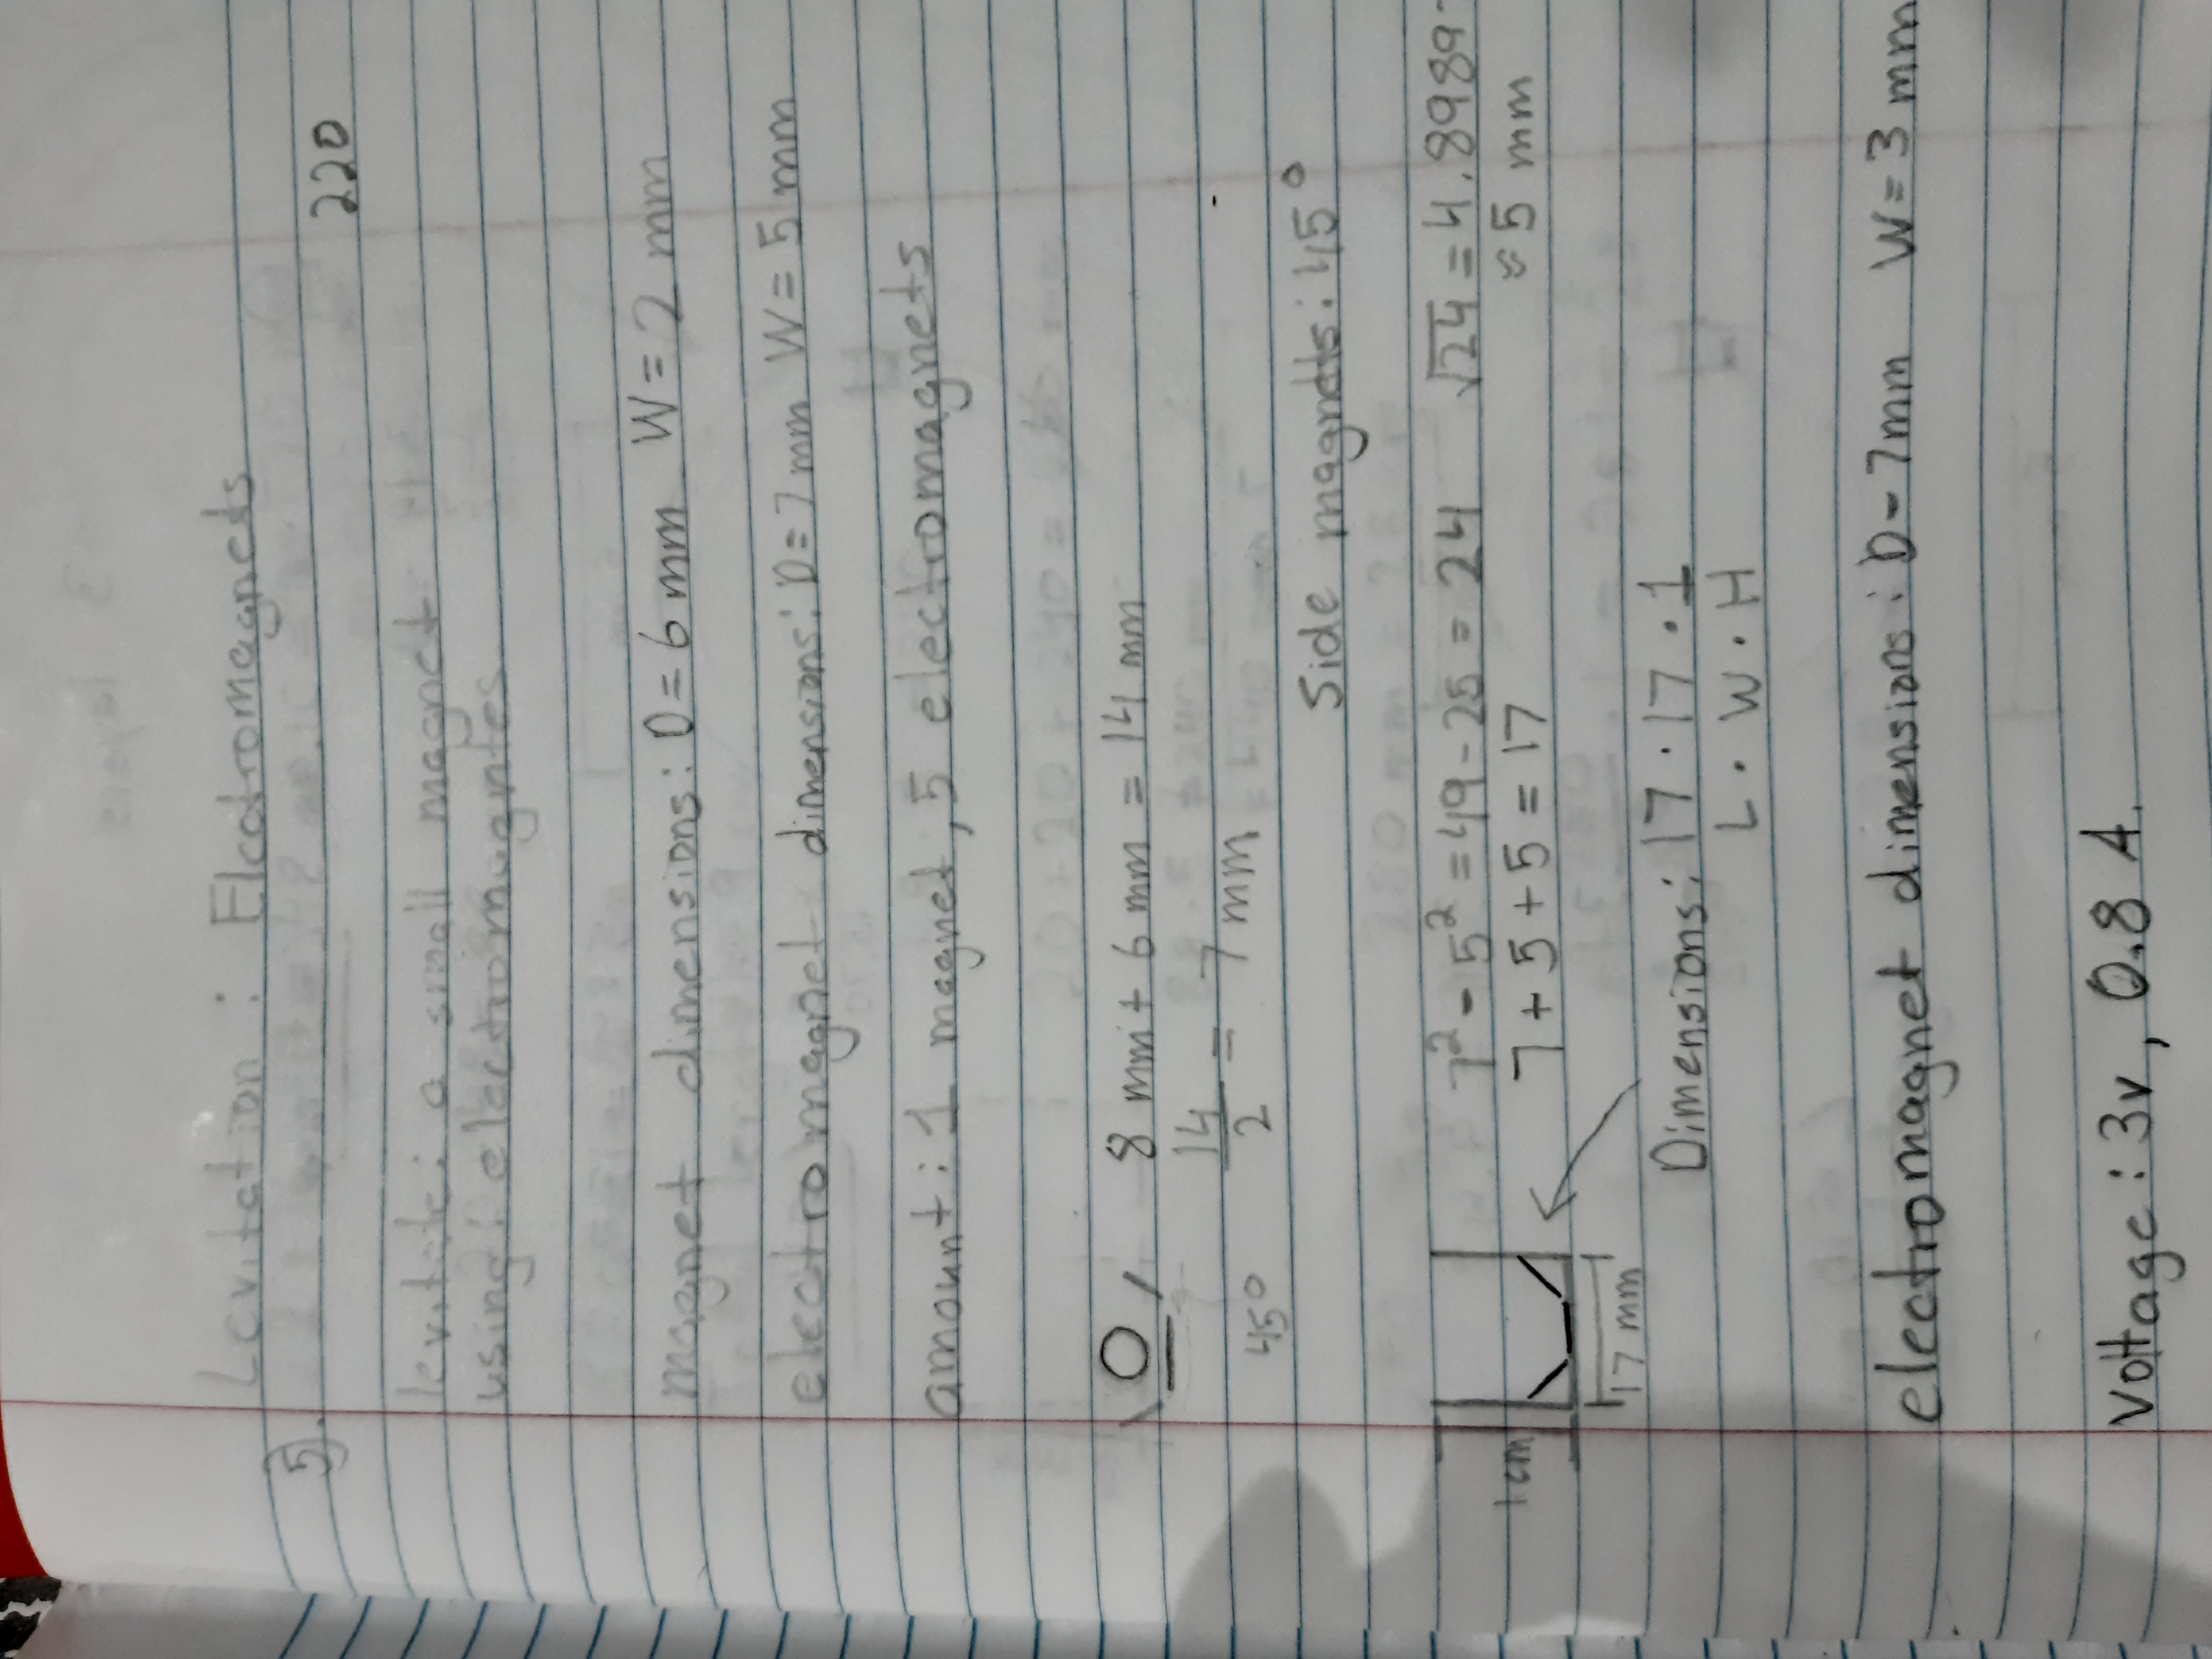 Levitation : Electromagnets
5.
220
levitate: a small magnet
using electromagntes
magnet dimensions: D=6mm W=2mm
electromagnet dimensions: D=7mm W=5mm
amount: 1 magnet, 5 electromagnets
\ O / 8 mm + 6 mm = 14 mm
14/2 = 7 mm
450
Side magnets: 45°
7² - 5² = 49 - 25 = 24 √24 = 4.8989
1cm
7 + 5 + 5 = 17
≈ 5 mm
17 mm
Dimensions: 17 · 17 · 1
L · W · H
electromagnet dimensions: D-7mm W=3mm
Voltage: 3v, 0.8 A.